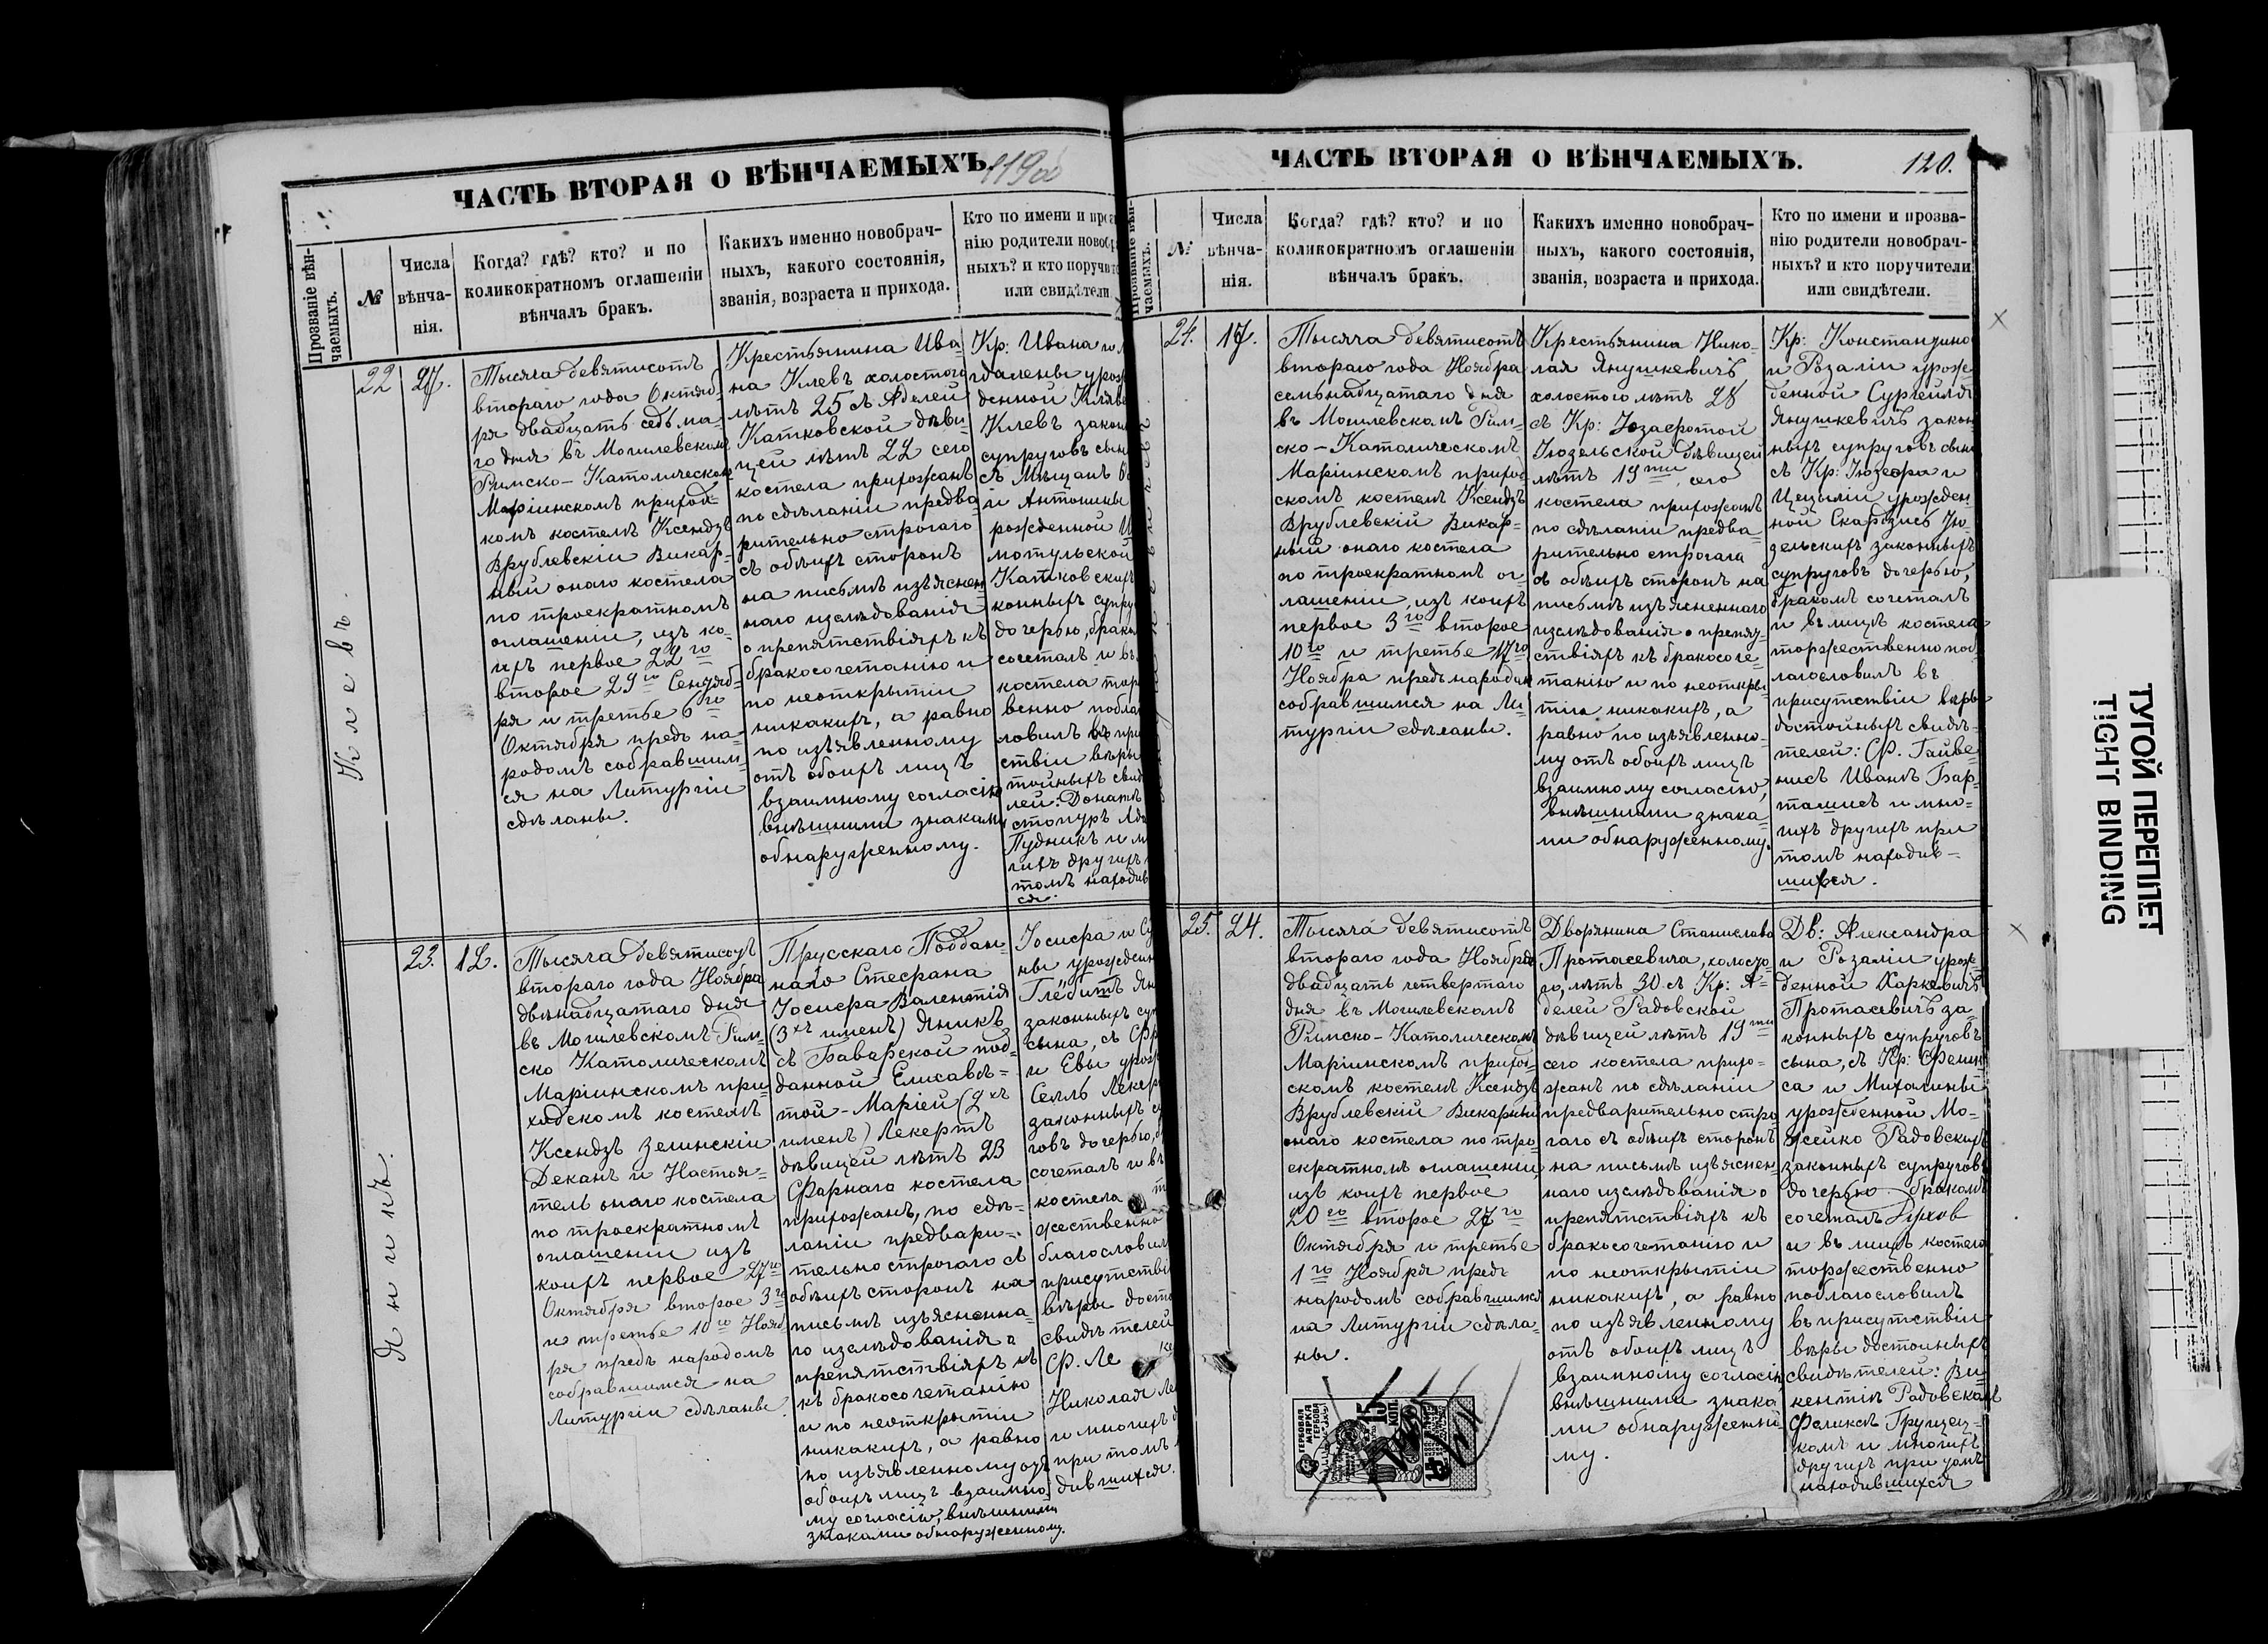 ЧАСТЬ ВТОРАЯ О ВѢНЧАЕМЫХЪ.
119об
Прозваніе вѣн-
чаемыхъ.
№
Числа
вѣнча-
нія.
Когда? гдѣ? кто? и по
коликократномъ оглашеніи
вѣнчалъ бракъ.
Какихъ именно новобрач-
ныхъ, какого состоянія,
званія, возраста и прихода.
Кто по имени и проз
нію родители новобр
ныхъ? и кто поручит
или свидѣтели
Клевъ.
22
27.
Тысяча девятисотъ
втораго года Октяб-
ря двадцать седьма-
го дня въ Могилевскомъ
Римско-Католическомъ
Маріинскомъ приход-
комъ костелѣ Ксендзъ
Врублевскій Викар-
ный онаго костела
по троекратномъ
оглашеніи, изъ ко-
ихъ первое 22го
второе 29го Сентяб-
ря и третье 6го
Октября предъ на-
родомъ собравшим-
ся на Литургіи
сдѣланы.
Крестьянина Ива-
на Клевъ холостого
лѣтъ 25 съ Аделей
Катковской дѣви-
цей лѣтъ 22 сего
костела прихожанъ
по сдѣланіи предва
рительно строгаго
съ обѣихъ сторонъ
на письмѣ изъяснен
наго изслѣдованія
о препятствіяхъ къ
бракосочетанію и
по неоткрытіи
никакихъ, а равно
по изъявленному
отъ обоихъ лицъ
взаимному согласію
внѣшними знаками
обнаруженному.
Кр: Ивана и
гдалены урож
денной
Клевъ закон
супруговъ сын
съ Мѣщан
и Антонины
рожденной
мотульской
Катковскихъ
конныхъ супру
дочерью, брако
сочеталъ и въ
костела тор
венно побла
ловилъ въ при
ствіи вѣры
тойныхъ свид
лей: Донатъ
стопуръ
Пудникъ и м
гихъ другихъ
томъ находив
ся.
Яникъ.
23.
12.
Тысяча девятисотъ
втораго года Ноября
двѣнадцатаго дня
въ Могилевскомъ Рим-
ско Католическомъ
Маріинскомъ при
ходскомъ костелѣ
Ксендзъ Зелинскій
Деканъ и Настоя-
тель онаго костела
по троекратномъ
оглашеніи изъ
коихъ первое 27го
Октября второе 3го
и третье 10го Нояб
ря предъ народомъ
собравшимся на
Литургіи сдѣланы.
Прусскаго Поддан-
наго Стефана
Іосифа Валентія
(3хъ именъ) Яникъ
съ Баварской под-
данной Елисаве-
той-Маріей (2хъ
именъ) Лекертъ
дѣвицей лѣтъ 23
Фарнаго костела
прихожанъ, по сдѣ-
ланіи предвари-
тельно строгаго съ
обѣихъ сторонъ на
письмѣ изъясненна-
го изслѣдованія о
препятствіяхъ къ
къ бракосочетанію
и по неоткрытіи
никакихъ, а равно
по изъявленному отъ
обоихъ лицъ взаимно
му согласію, внѣшними
знаками обнаруженному.
Іосифа и
ны урожден
Глебитъ Ян
законныхъ суп
сына, съ Фр
и Евы урож
Селль Лекер
законныхъ с
говъ дочерью,
сочеталъ и въ
костела
жественно
благословил
присутстві
вѣры досто
свидѣтелей
Ф. Ле
Николая Ле
и многихъ д
при томъ
дившихся.
ЧАСТЬ ВТОРАЯ О ВѢНЧАЕМЫХЪ.
120.
Прозваніе вѣн-
чаемыхъ.
№
Числа
вѣнча-
нія.
Когда? гдѣ? кто? и по
коликократномъ оглашеніи
вѣнчалъ бракъ.
Какихъ именно новобрач-
ныхъ, какого состоянія,
званія, возраста и прихода.
Кто по имени и прозва-
нію родители новобрач-
ныхъ? и кто поручители
или свидѣтели.
24.
17.
Тысяча девятисотъ
втораго года Ноября
семьнадцатаго дня
въ Могилевскомъ Рим-
ско-Католическомъ
Маріинскомъ приход
скомъ костелѣ Ксендзъ
Врублевскій Викар-
ный онаго костела
по троекратномъ ог-
лашеніи, изъ коихъ
первое 3го второе
10го и третье 17го
Ноября предъ народом
собравшимся на Ли-
тургіи сдѣланы.
Крестьянина Нико-
лая Янушкевичъ
холостого лѣтъ 28
съ Кр: Юзефатой
Іюзельской дѣвицей
лѣтъ 19ти сего
костела прихожанъ
по сдѣланіи предва-
рительно строгаго
съ обѣихъ сторонъ на
письмѣ изъясненнаго
изслѣдованія о препят-
ствіяхъ къ бракосоче-
танію и по неоткры-
тіи никакихъ, а
равно по изъявленно-
му отъ обоихъ лицъ
взаимному согласію,
внѣшними знака-
ми обнаруженному.
Кр: Константина
и Розаліи урож
денной Сургейля
Янушкевичъ закон
ныхъ супруговъ сына
съ Кр: Іюзефа и
Цециліи урожден
ной Скабзисъ Ію
зельскихъ законныхъ
супруговъ дочерью,
бракомъ сочеталъ
и въ лицѣ костела
торжественно поб-
лагословилъ въ
присутствіи вѣры
достойныхъ свидѣ-
телей: Ф. Гайве
нисъ Иванъ Бар-
ташисъ и мно-
гихъ другихъ при
томъ находив-
шихся.
25.
24.
Тысяча девятисотъ
втораго года Ноября
двадцать четвертаго
дня въ Могилевскомъ
Римско-Католическомъ
Маріинскомъ приход-
скомъ костелѣ Ксендзъ
Врублевскій Викарный
онаго костела по тро
екратномъ оглашеніи,
изъ коихъ первое
20го второе 27го
Октября и третье
1го Ноября предъ
народомъ собравшимся
на Литургіи сдѣла-
ны.
Дворянина Станислава
Протасевича, холосто-
го, лѣтъ 30 съ Кр: А-
делей Радовской
дѣвицей лѣтъ 19ти
сего костела прихо-
жанъ по сдѣланіи
предварительно стро
гаго съ обѣихъ сторонъ
на письмѣ изъяснен-
наго изслѣдованія о
препятствіяхъ къ
бракосочетанію и
по неоткрытіи
никакихъ, а равно
по изъявленному
отъ обоихъ лицъ
взаимному согласію,
внѣшними знака
ми обнаруженно-
му.
Дв: Александра
и Розаліи урож-
денной Харкевичъ
Протасевичъ за-
конныхъ супруговъ
сына, съ Кр: Феликса
са и Михалины
урожденной Мо-
жейко Радовскихъ
законныхъ супруговъ
дочерью бракомъ
сочеталъ
и въ лицѣ костела
торжественно
поблагословилъ
въ присутствіи
вѣры достойныхъ
свидѣтелей: Ви-
кентія Радовскаго
Феликсъ Грушец-
комъ и многихъ
другихъ при томъ
находившихся
ГЕРБОВАЯ
МАРКА
15
КОП.
ТУГОЙ ПЕРЕПЛЕТ
TIGHT BINDING